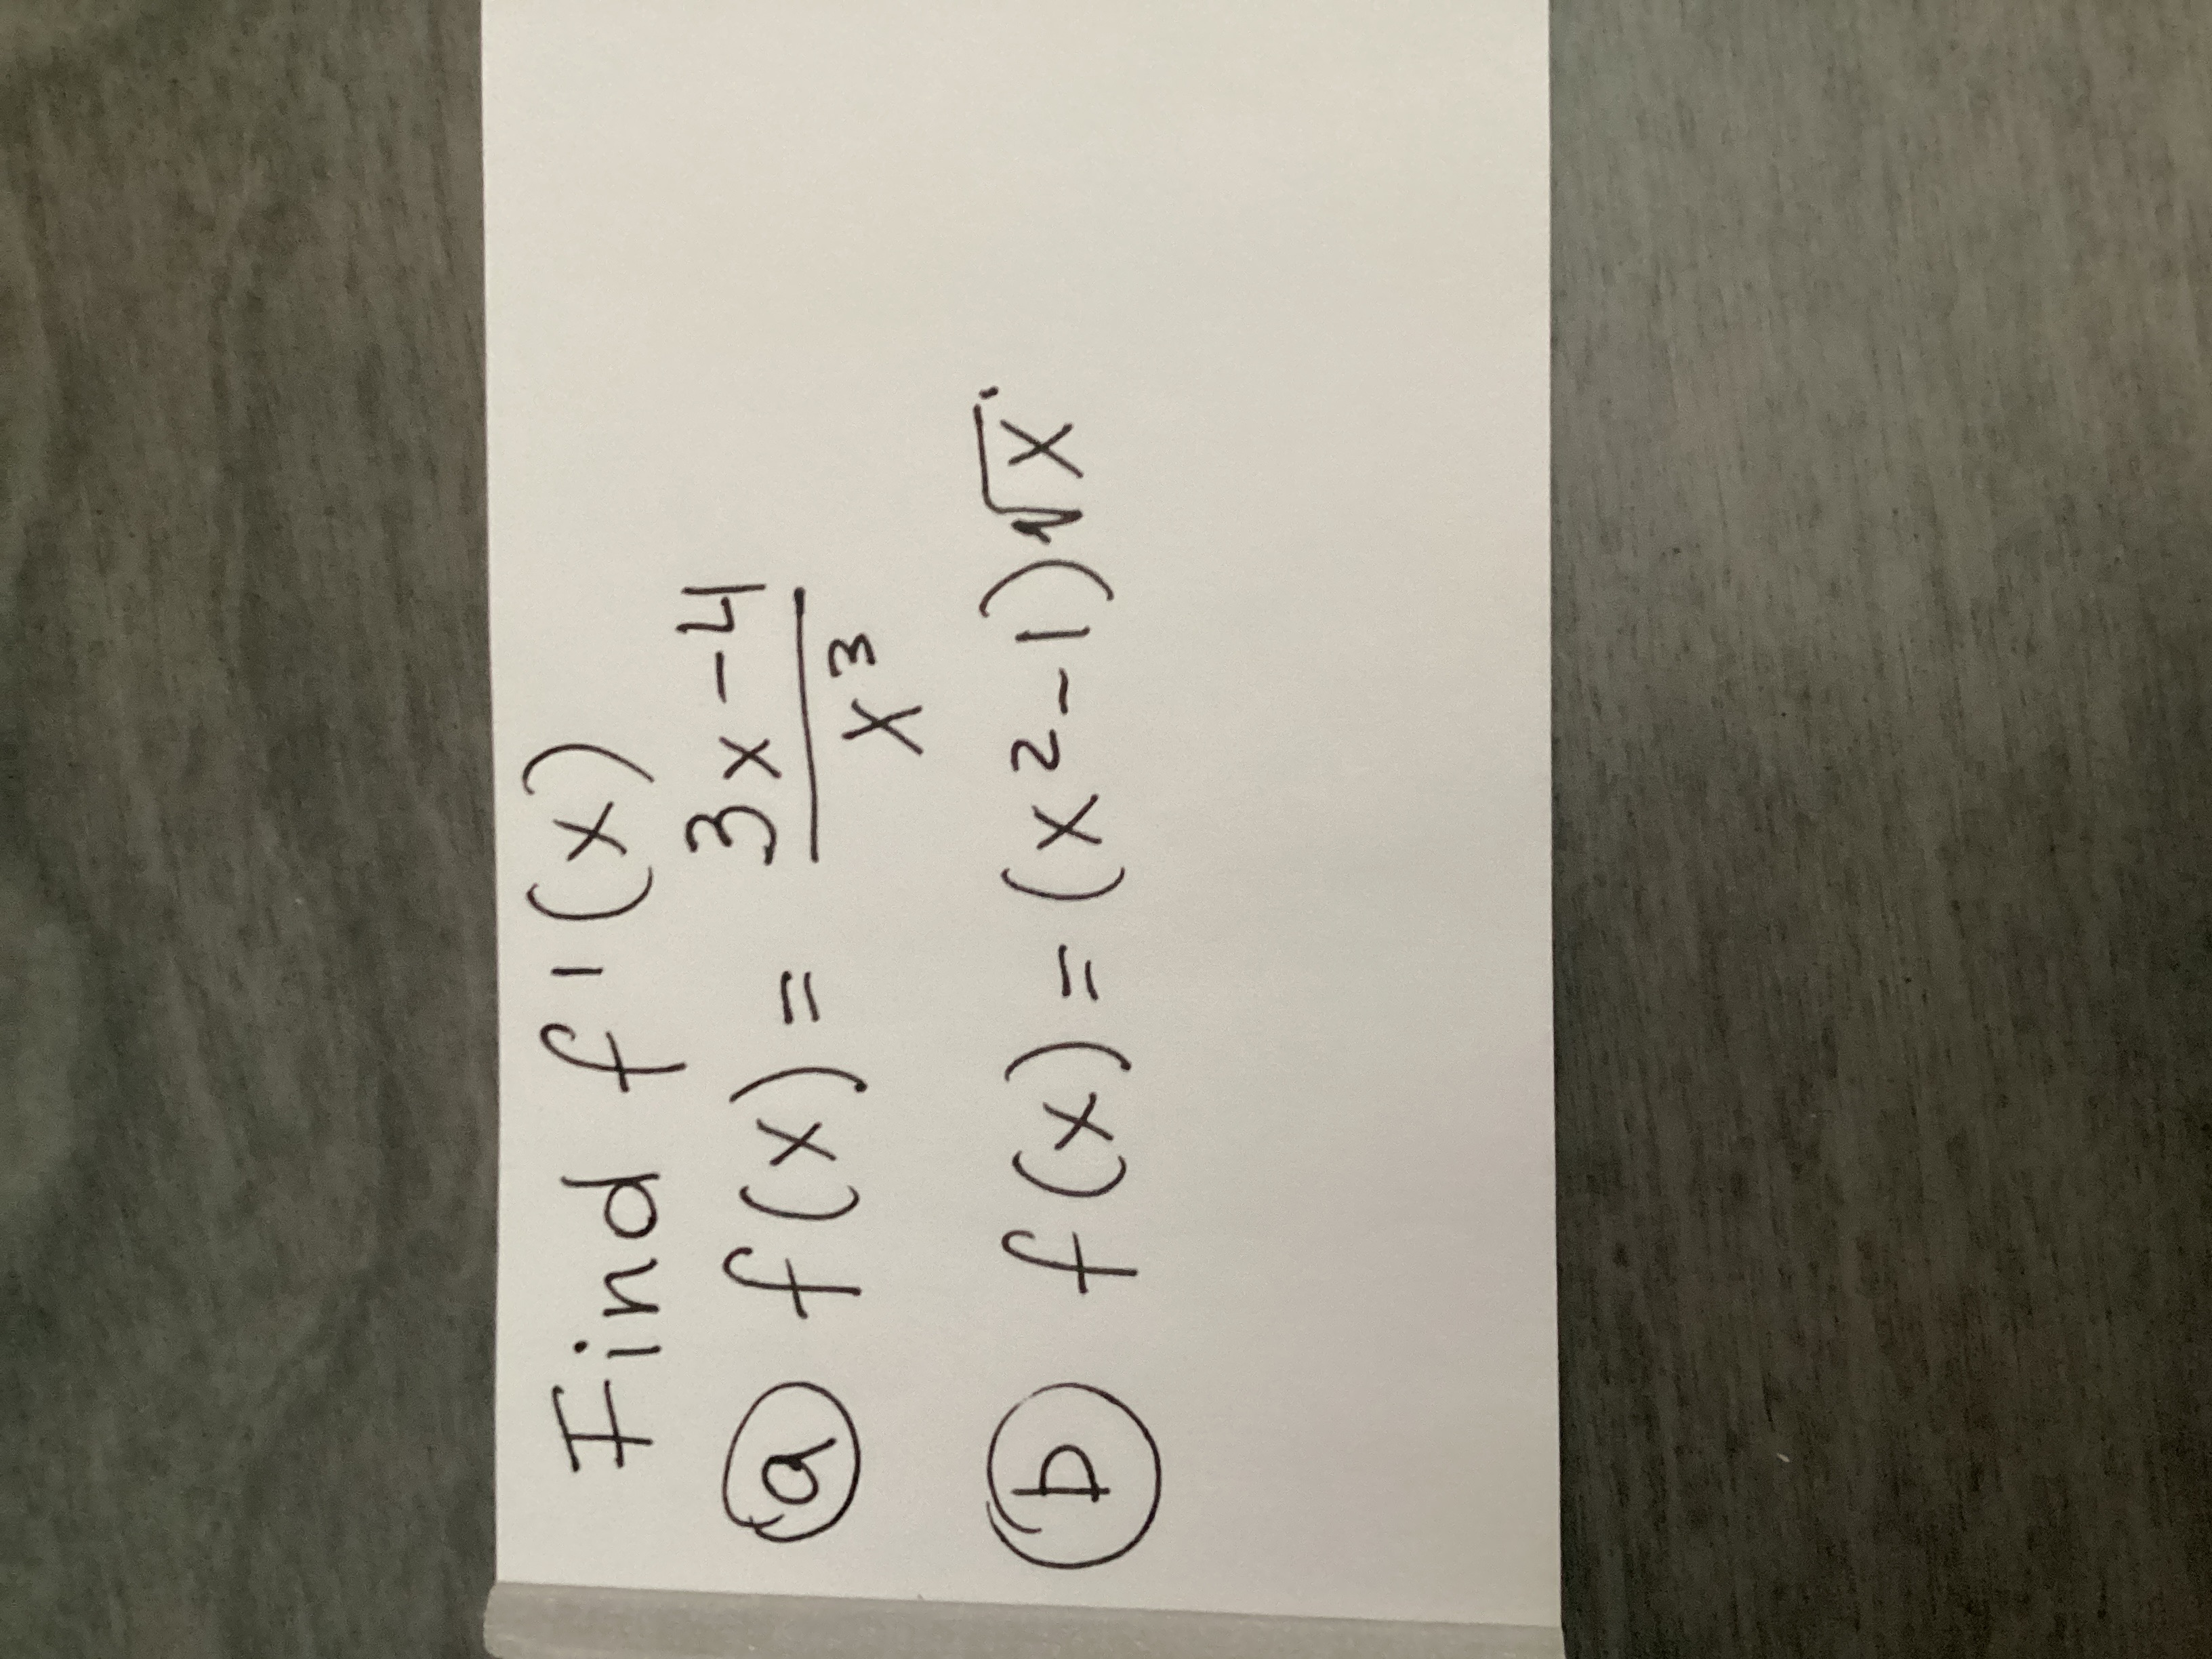 Find f'(x)
ⓐ f(x) = \frac{3x-4}{x^3}
ⓑ f(x) = (x²-1)√x